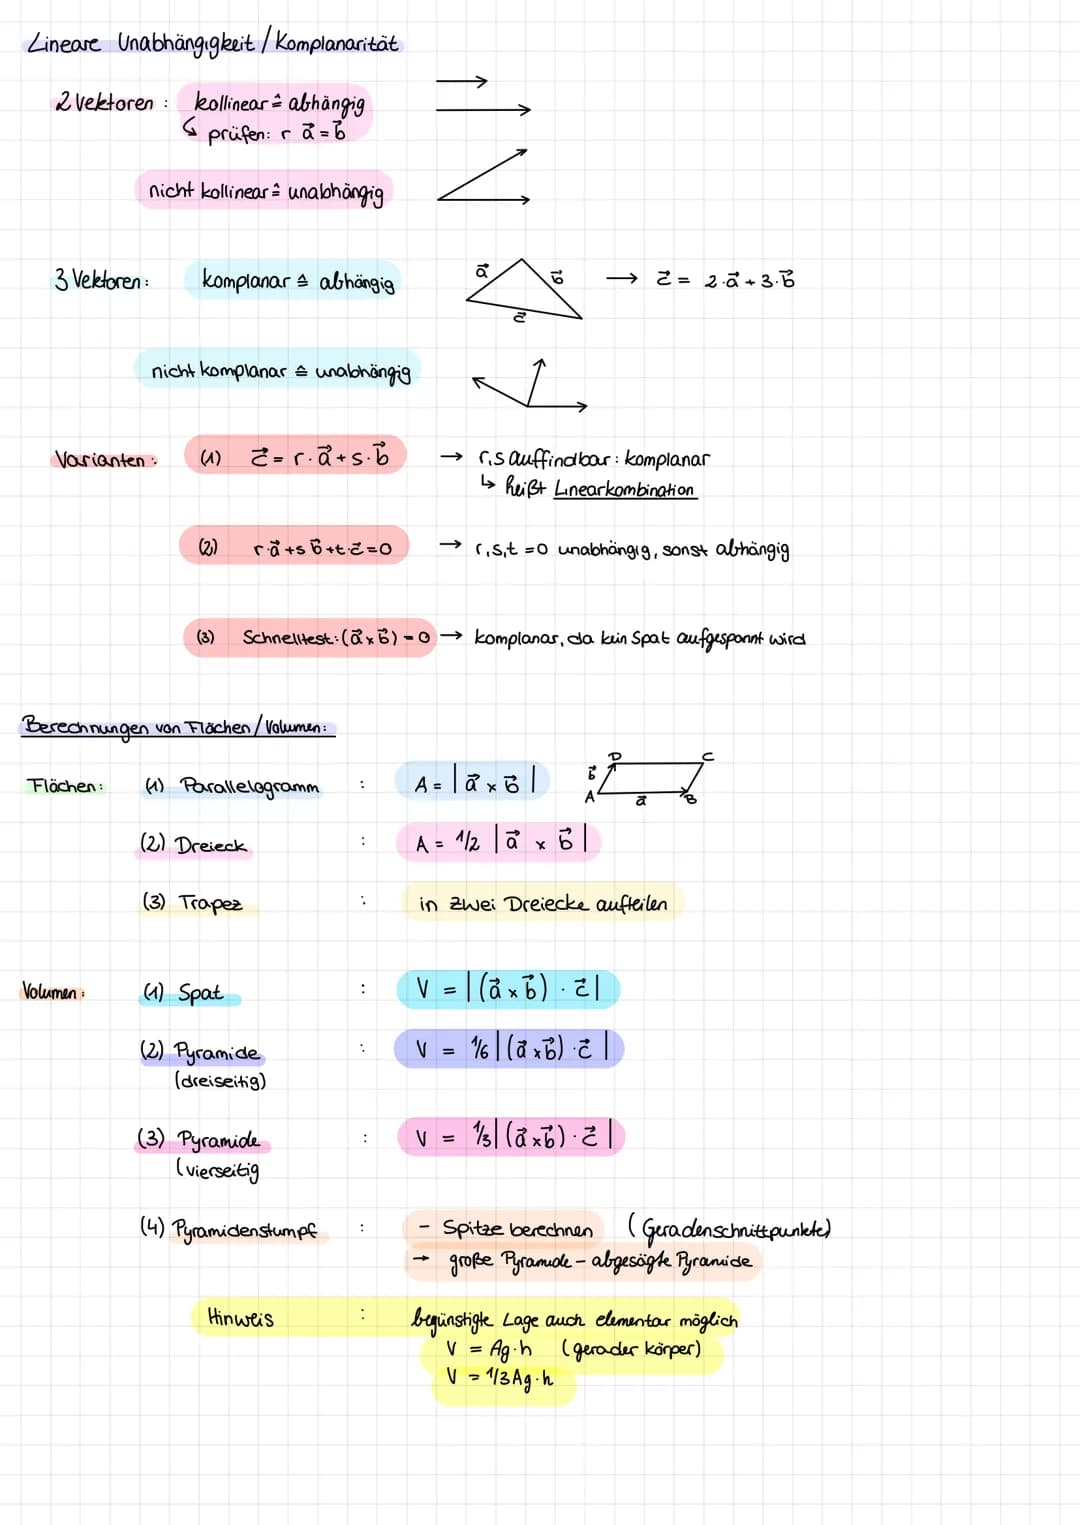 Lineare Unabhängigkeit / Komplanarität
2 Vektoren : kollinear ≙ abhängig
↳ prüfen: r a⃗ = b⃗
nicht kollinear ≙ unabhängig
3 Vektoren : komplanar ≙ abhängig a⃗ b⃗ c⃗ → c⃗ = 2·a⃗ + 3·b⃗
nicht komplanar ≙ unabhängig
Varianten : (1) c⃗ = r·a⃗ + s·b⃗ → r,s auffindbar : komplanar
↳ heißt Linearkombination
(2) r·a⃗ + s b⃗ + t·c⃗ = 0 → r,s,t = 0 unabhängig, sonst abhängig
(3) Schnelltest: (a⃗ × b⃗) = 0 → komplanar, da kein Spat aufgespannt wird
Berechnungen von Flächen / Volumen:
Flächen : (1) Parallelogramm : A = |a⃗ × b⃗| A B C D a⃗ b⃗
(2) Dreieck : A = 1/2 |a⃗ × b⃗|
(3) Trapez : in zwei Dreiecke aufteilen
Volumen : (1) Spat : V = |(a⃗ × b⃗) · c⃗|
(2) Pyramide : V = 1/6 |(a⃗ × b⃗) · c⃗|
(dreiseitig)
(3) Pyramide : V = 1/3 |(a⃗ × b⃗) · c⃗|
(vierseitig
(4) Pyramidenstumpf : - Spitze berechnen (Geradenschnittpunkte)
→ große Pyramide - abgesägte Pyramide
Hinweis : begünstigte Lage auch elementar möglich
V = Ag·h (gerader körper)
V = 1/3 Ag·h